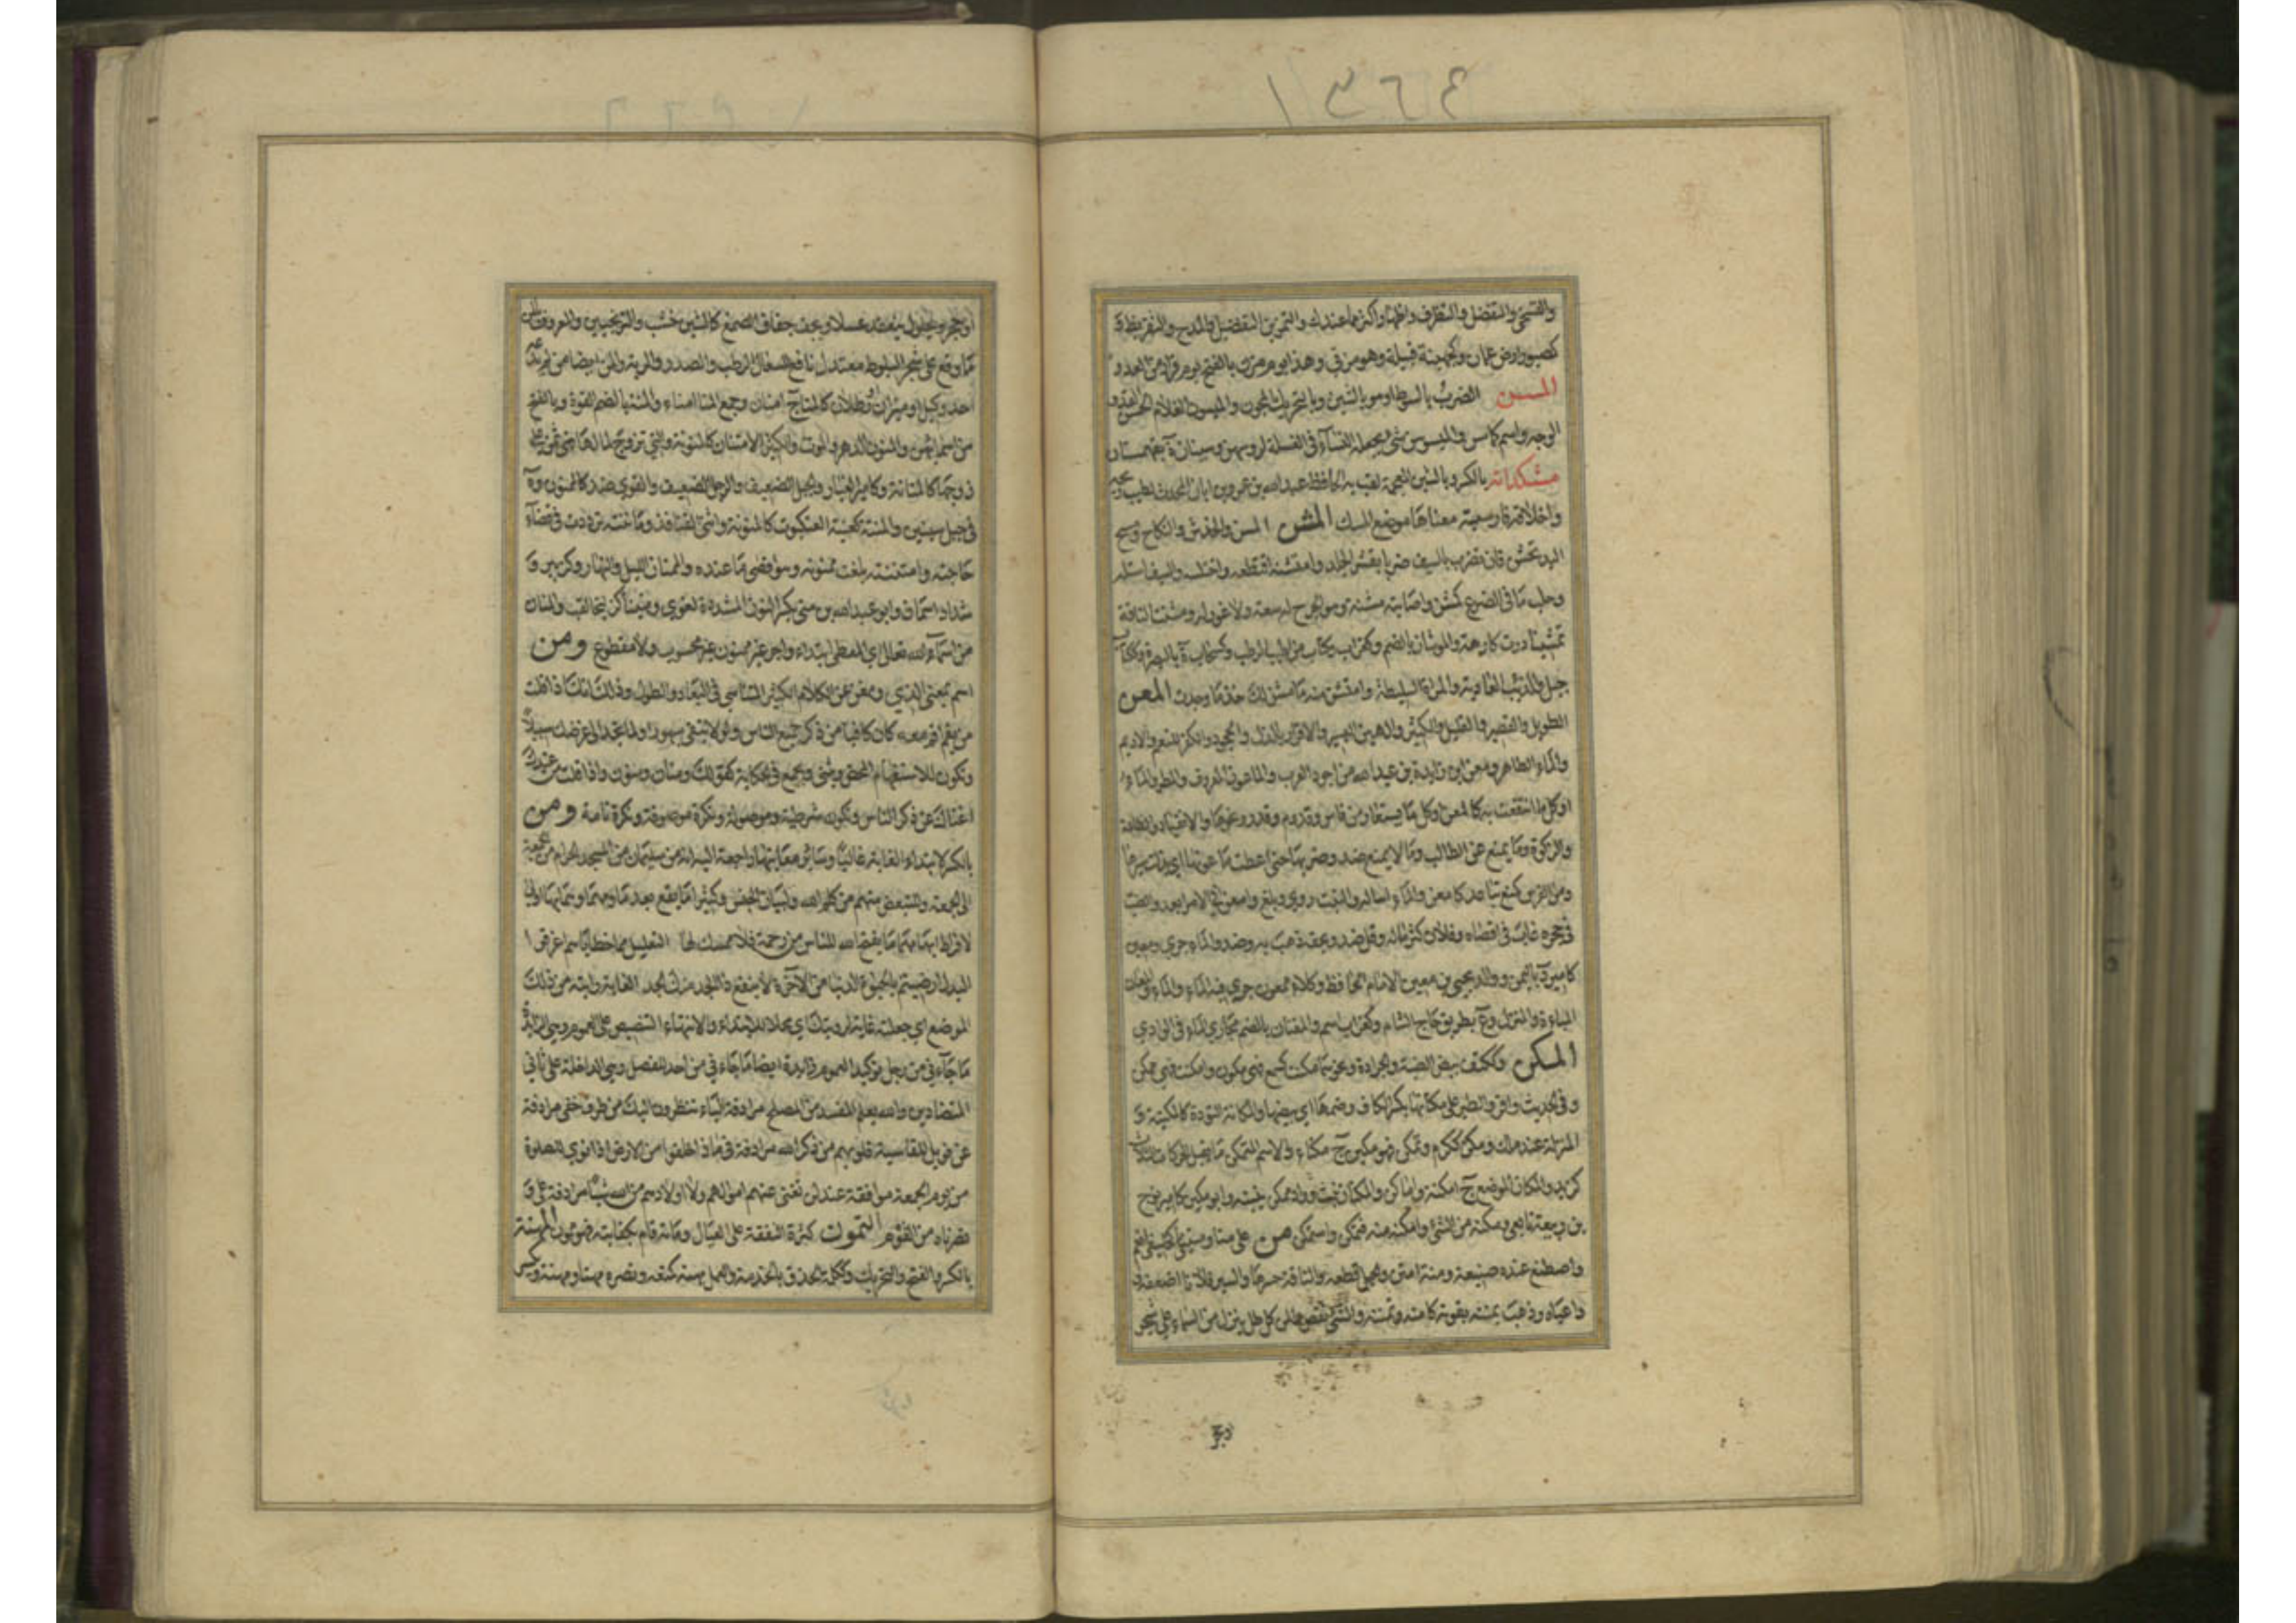 ١٣٦٤
والتسخي والتفضل والتظرف واظهار اكثر مما عندك والتمرين التفضيل والمدح والتقريظ و
كصبور ارض عمان وكجهينة قبيلة وهو مزني وهذا يوم مزن بالفتح يوم فرار من العدو
المسن الضرب بالسوط او هو بالشين وبالتحريك المجون والميسون الغلام الحسن القد و
الوجه واسم كاسن والميسوسن شيء يجعله النساء في الغسلة لرؤسهن وسينان ة بقهستان
مشكدانه بالكسر وبالشين المعجمة لقب به الحافظ عبد الله بن عمر بن ابان المحدث لطيب ريحه
واخلاقه فارسية معناها موضع المسك المشن المسن والخدش والنكاح ومسح
اليد بخشن وان تضرب بالسيف ضربا يقشر الجلد وامتشنه اقتطعه واختلسه والسيف استله
وحلب ما في الضرع كمشن واصابته مشنة وهو الجرح له سعة ولا غور له ومشنت الناقة
تمشينا درت كارهة والموشان بالضم وكغراب وكتاب من اطيب الرطب وكسحابة ة بالبصرة وككتاب
جبل والذئب العادية والمراة السليطة وامتشن منه ما مشن لك خذ ما وجدت المعن
الطويل والقصير والقليل والكثير والهين اليسير والاقرار بالذل والجحود والكفر للنعم والاديم
والماء الظاهر ومعن بن زايدة بن عبد الله من اجود العرب والماعون المعروف والمطر والماء
او كل ما انتفعت به كالمعن او كل ما يستعار من فاس وقدوم وقدر ونحوها والانقياد والطاعة
والزكوة وما يمنع عن الطالب وما لا يمنع ضد وضربها حتى اعطت ماعونها اي بذلت سيرها
ومعن الفرس كمنع تباعد كامعن والماء اساله والنبت روي وبلغ وامعن في الامر ابعد والضب
في حجره غاب في اقصاه وفلان كثر ماله وقل ضد وبحقه ذهب به وضد والماء جرى ومعين
كامير د باليمن ووالد يحيى بن معين الامام الحافظ وكلاء ممعون جرى فيه الماء والماء والمعان
المباءة والمنزل وع بطريق حاج الشام وكغراب اسم والمعنان بالضم مجاري الماء في الوادي
المكن وككتف بيض الضبة والجرادة ونحوهما مكنت كسمع فهي مكون وامكنت فهي ممكن
وفي الحديث واقروا الطير على مكناتها بكسر الكاف وضمها اي بيضها والمكانة التؤدة كالمكينة و
المنزلة عند ملك ومكن ككرم وتمكن فهو مكين ج مكناء والاسم المتمكن ما يقبل الحركات الثلاث
كزيد والمكان الموضع ج امكنة واماكن والمكنان نبت وواد ممكن ينبته وابو مكين كامير نوح
بن ربيعة تابعي ومكنته من الشيء وامكنته منه فتمكن واستمكن من عليه منا ومنينى كخليفى انعم
واصطنع عنده صنيعة ومنة امتن والحبل قطعه والناقة حسرها والسير فلانا اضعفه و
اعياه وذهب بمنته بقوته كامنه وتمننه والشيء نقص والمن كل طل ينزل من السماء على شجر
او حجر ويحلو وينعقد عسلا ويجف جفاف الصمغ كالشير خشت والترنجبين والمعروف بالمن
ما وقع على شجر البلوط معتدل نافع للسعال الرطب والصدر والرية والمن ايضا من لم يدعه
احد وكيل او ميزان او رطلان كالمنا ج امنان وجمع المنا امناء والمنة بالضم القوة وبالفتح
من اسمائهن والمنون الدهر والموت والكثير الامتنان كالمنونة والتي تزوجت لمالها فهي تمن على
زوجها كالمنانة وكامير الغبار والحبل الضعيف والرجل الضعيف والقوي ضد كالممنون وة
في جبل سنير والمننة كعنبة العنكبوت كالمنونة وانثى القنافذ ومانته ترددت في قضاء
حاجته وامتننته بلغت ممنونه وهو اقصى ما عنده والممنان الليل والنهار وكزبير و
شداد اسمان وابو عبد الله بن منى بكسر النون المشددة لغوي ومنينا لقب والمنان
من اسماء الله تعالى اي المعطي ابتداء واجر غير ممنون غير محسوب ولا مقطوع ومن
اسم بمعنى الذي ومغن عن الكلام الكثير المتناهي في البعاد والطول وذلك انك اذا قلت
من يقم اقم معه كان كافيا من ذكر جميع الناس ولولا لبقي مبهورا ولما تجد الى غرضك سبيلا
وتكون للاستفهام المحض ويثنى ويجمع في الحكاية كقولك منان ومنون واذا قلت من عندك
اغناك عن ذكر الناس وتكون شرطية وموصولة ونكرة موصوفة ونكرة تامة ومن
بالكسر لابتداء الغاية غالبا وسائر معانيها راجعة اليه انه من سليمان من المسجد الحرام من الجمعة
الى الجمعة وللتبعيض منهم من كلم الله ولبيان الجنس وكثيرا ما يقع بعد ما ومهما وهما بها اولى
لافراط ابهامهما ما يفتح الله للناس من رحمة فلا ممسك لها التعليل مما خطاياهم اغرقوا
البدل ارضيتم بالحيوة الدنيا من الاخرة لا ينفع ذا الجد منك الجد الغاية رايته من ذلك
الموضع اي جعلته غاية لرؤيتك اي محلا للابتداء والانتهاء التنصيص على العموم وهي الزايدة
ما جاءني من رجل توكيد العموم زايدة ايضا ما جاءني من احد الفصل وهي الداخلة على ثاني
المتضادين والله يعلم المفسد من المصلح مرادفة الباء ينظرون اليك من طرف خفي مرادفة
عن فويل للقاسية قلوبهم من ذكر الله مرادفة في ماذا خلقوا من الارض اذا نودي للصلوة
من يوم الجمعة موافقة عند لن تغني عنهم اموالهم ولا اولادهم من الله شيئا مرادفة على و
نصرناه من القوم التمون كثرة النفقة على العيال ومانه قام بكفايته فهو ممون المهنة
بالكسر والفتح والتحريك وككلمة الحذق بالخدمة والعمل مهنه كمنعه ونصره مهنا ومهنة ويكسر